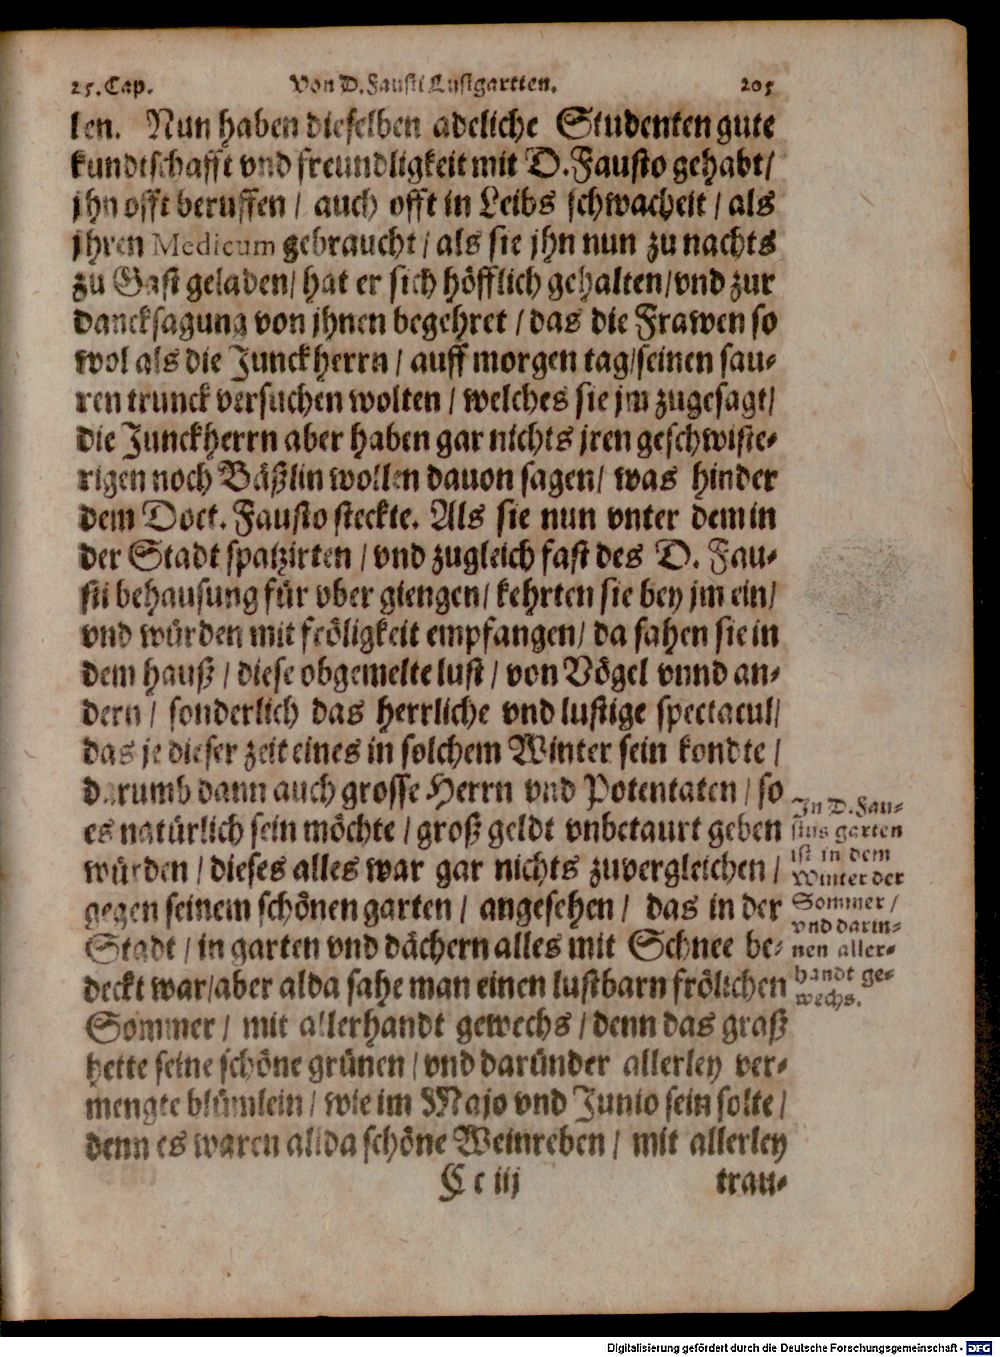 25. Cap. Von D. Fausti Lustgartten. 205
len. Nun haben dieselben adeliche Studenten gute
kundtschafft vnd freundligkeit mit D. Fausto gehabt/
jhn offt beruffen / auch offt in Leibs schwacheit / als
jhren Medicum gebraucht / als sie jhn nun zu nachts
zu Gast geladen / hat er sich höfflich gehalten / vnd zur
dancksagung von jhnen begehret / das die Frawen so
wol als die Junckherrn / auff morgen tag / seinen sau-
ren trunck versuchen wolten / welches sie jm zugesagt/
die Junckherrn aber haben gar nichts jren geschwiste-
rigen noch Bäßlin wollen dauon sagen / was hinder
dem Doct. Fausto steckte. Als sie nun vnter dem in
der Stadt spatzirten / vnd zugleich fast des D. Fau-
sti behausung für vber giengen / kehrten sie bey jm ein/
vnd würden mit fröligkeit empfangen / da sahen sie in
dem hauß / diese obgemelte lust / von Vögel vnnd an-
dern / sonderlich das herrliche vnd lustige spectacul/
das je dieser zeit eines in solchem Winter sein kondte /
darumb dann auch grosse Herrn vnd Potentaten / so
es natürlich sein möchte / groß geldt vnbetaurt geben
würden / dieses alles war gar nichts zuvergleichen /
gegen seinem schönen garten / angesehen / das in der
Stadt / in garten vnd dächern alles mit Schnee be-
deckt war / aber alda sahe man einen lustbarn frölichen
Sommer / mit allerhandt gewechs / denn das graß
hette seine schöne grünen / vnd darunder allerley ver-
mengte blümlein / wie im Majo vnd Junio sein solte /
denn es waren allda schöne Weinreben / mit allerley
Cc iij trau-
In D. Fau-
stus garten
ist in dem
Winter der
Sommer /
vnd darin-
nen aller-
handt ge-
wechs.
Digitalisierung gefördert durch die Deutsche Forschungsgemeinschaft - DFG